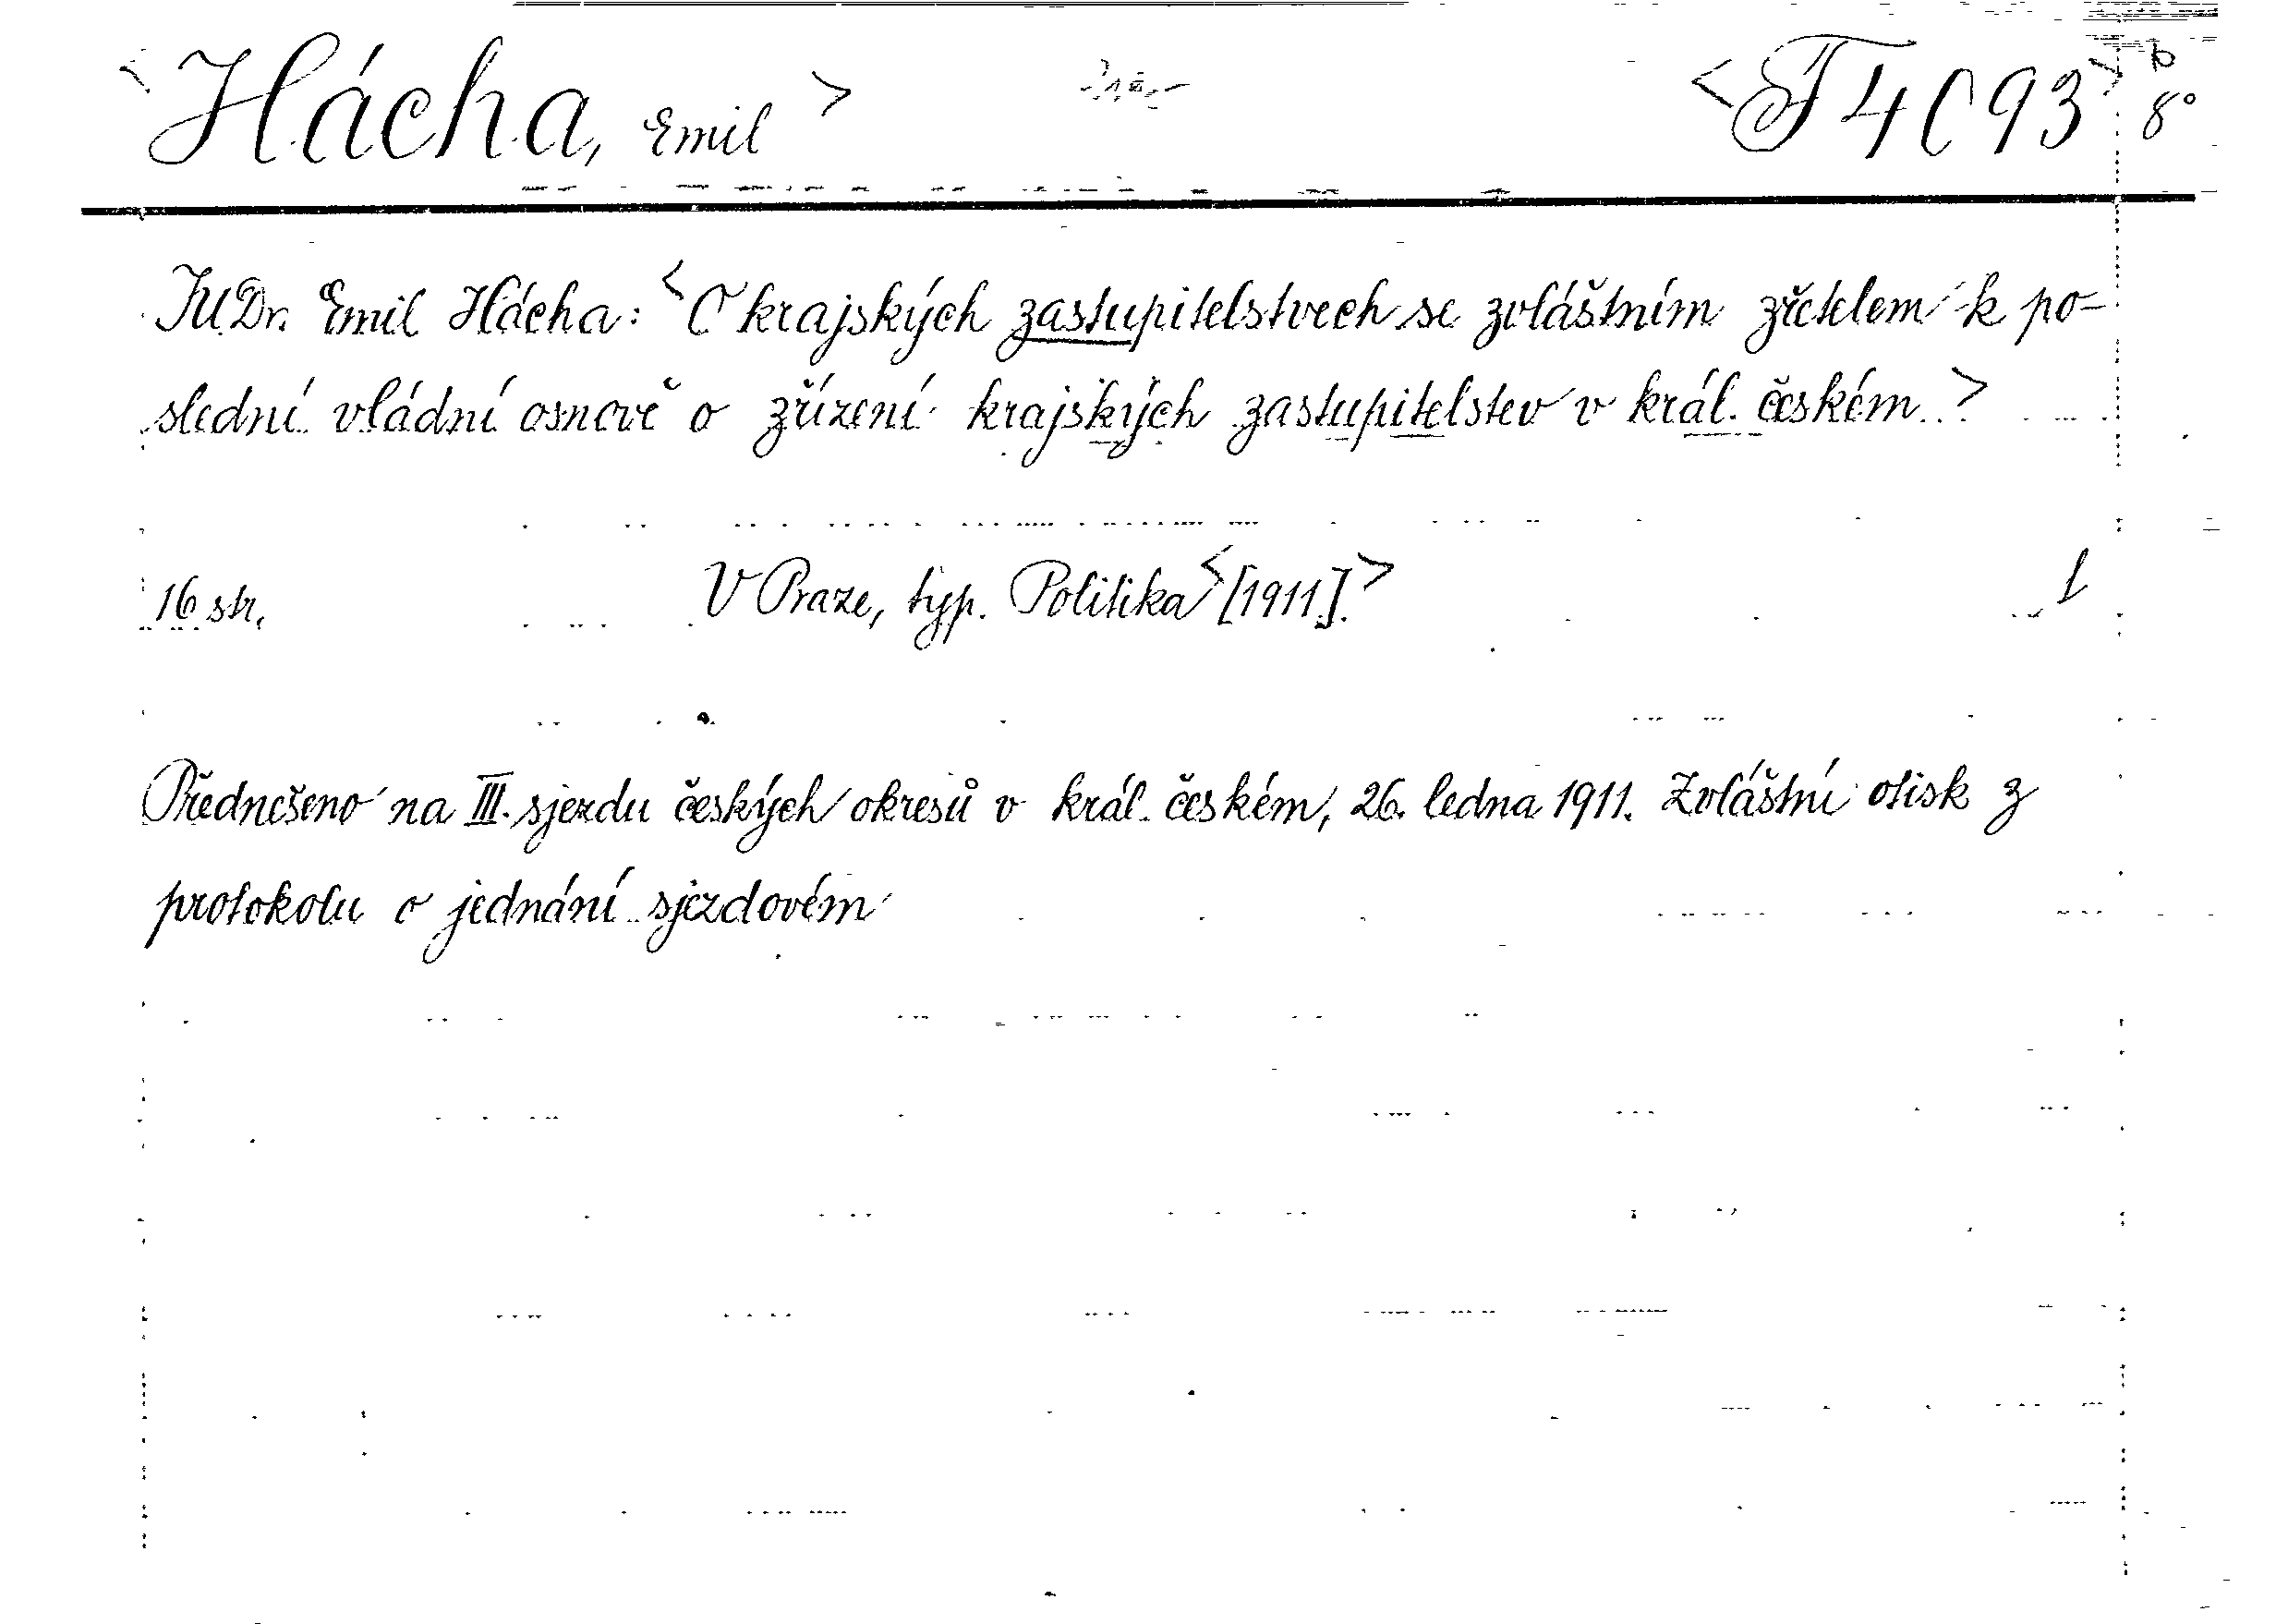 <Hácha, Emil> <F 4093> b
8°
JUDr. Emil Hácha: <O krajských zastupitelstvech se zvláštním zřetelem k po-
slední vládní osnově o zřízení krajských zastupitelstev v král. českém.>
16 str. V Praze, typ. Politika <[1911].> 1
Předneseno na III. sjezdu českých okresů v král. českém, 26. ledna 1911. Zvláštní otisk z
protokolu o jednání sjezdovém